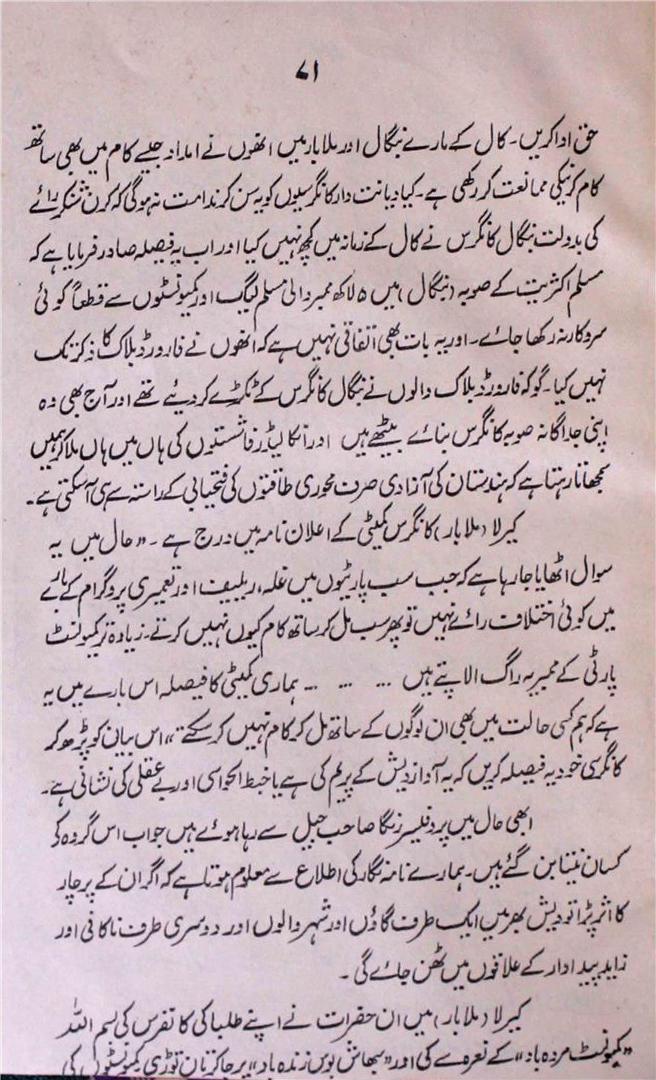 ۷۱
حق ادا کریں۔ کال کے مارے بنگال اور ملابار میں انھوں نے امداد جیسے کام میں بھی ساتھ
کام کرنیکی ممانعت کر رکھی ہے۔ کیا دیانت دار کانگرسیوں کو یہ سن کر ندامت نہ ہوگی کہ کرن شنکر رائے
کی بدولت بنگال کانگرس نے کال کے زمانہ میں کچھ نہیں کیا اور اب یہ فیصلہ صادر فرمایا ہے کہ
مسلم اکثریت کے صوبہ (بنگال) میں ۵ لاکھ ممبر والی مسلم لیگ اور کمیونسٹوں سے قطعاً کوئی
سروکار نہ رکھا جائے۔ اور یہ بات بھی اتفاقی نہیں ہے کہ انھوں نے فارورڈ بلاک کا ذکر تک
نہیں کیا۔ گو کہ فارورڈ بلاک والوں نے بنگال کانگرس کے ٹکڑے کر دیئے تھے اور آج بھی وہ
اپنی جداگانہ صوبہ کانگرس بنائے بیٹھے ہیں اور انکا لیڈر فاشستوں کی ہاں میں ہاں ملا کر ہمیں
سمجھاتا رہتا ہے کہ ہندستان کی آزادی صرف محوری طاقتوں کی فتحیابی کے راستہ سے ہی آ سکتی ہے۔
کیرلا (ملابار) کانگرس کمیٹی کے اعلان نامہ میں درج ہے۔ "حال میں یہ
سوال اٹھایا جا رہا ہے کہ جب سب پارٹیوں میں غلہ، ریلیف اور تعمیری پروگرام کے بارے
میں کوئی اختلاف رائے نہیں تو پھر سب مل کر ساتھ کام کیوں نہیں کرتے۔ زیادہ تر کمیونسٹ
پارٹی کے ممبر یہ راگ الاپتے ہیں ... ... ... ہماری کمیٹی کا فیصلہ اس بارے میں یہ
ہے کہ ہم کسی حالت میں بھی ان لوگوں کے ساتھ مل کر کام نہیں کر سکتے" اس بیان کو پڑھ کر
کانگرسی خود یہ فیصلہ کریں کہ یہ آواز دیش کے پریم کی ہے یا خبط الحواسی اور بے عقلی کی نشانی ہے۔
ابھی حال میں پروفیسر رنگا صاحب جیل سے رہا ہوئے ہیں جو اب اس گروہ کے
کسان نیتا بن گئے ہیں۔ ہمارے نامہ نگار کی اطلاع سے معلوم ہوتا ہے کہ اگر ان کے پرچار
کا اثر پڑا تو دیش بھر میں ایک طرف گاؤں اور شہر والوں اور دوسری طرف ناکافی اور
زاید پیداوار کے علاقوں میں ٹھن جائے گی۔
کیرلا (ملابار) میں ان حضرات نے اپنے طلبا کی کانفرس کی بسم اللہ
"کمیونسٹ مردہ باد" کے نعرہ سے کی اور "سبھاش بوس زندہ باد" پر جا کر تان توڑی کمیونسٹوں کی